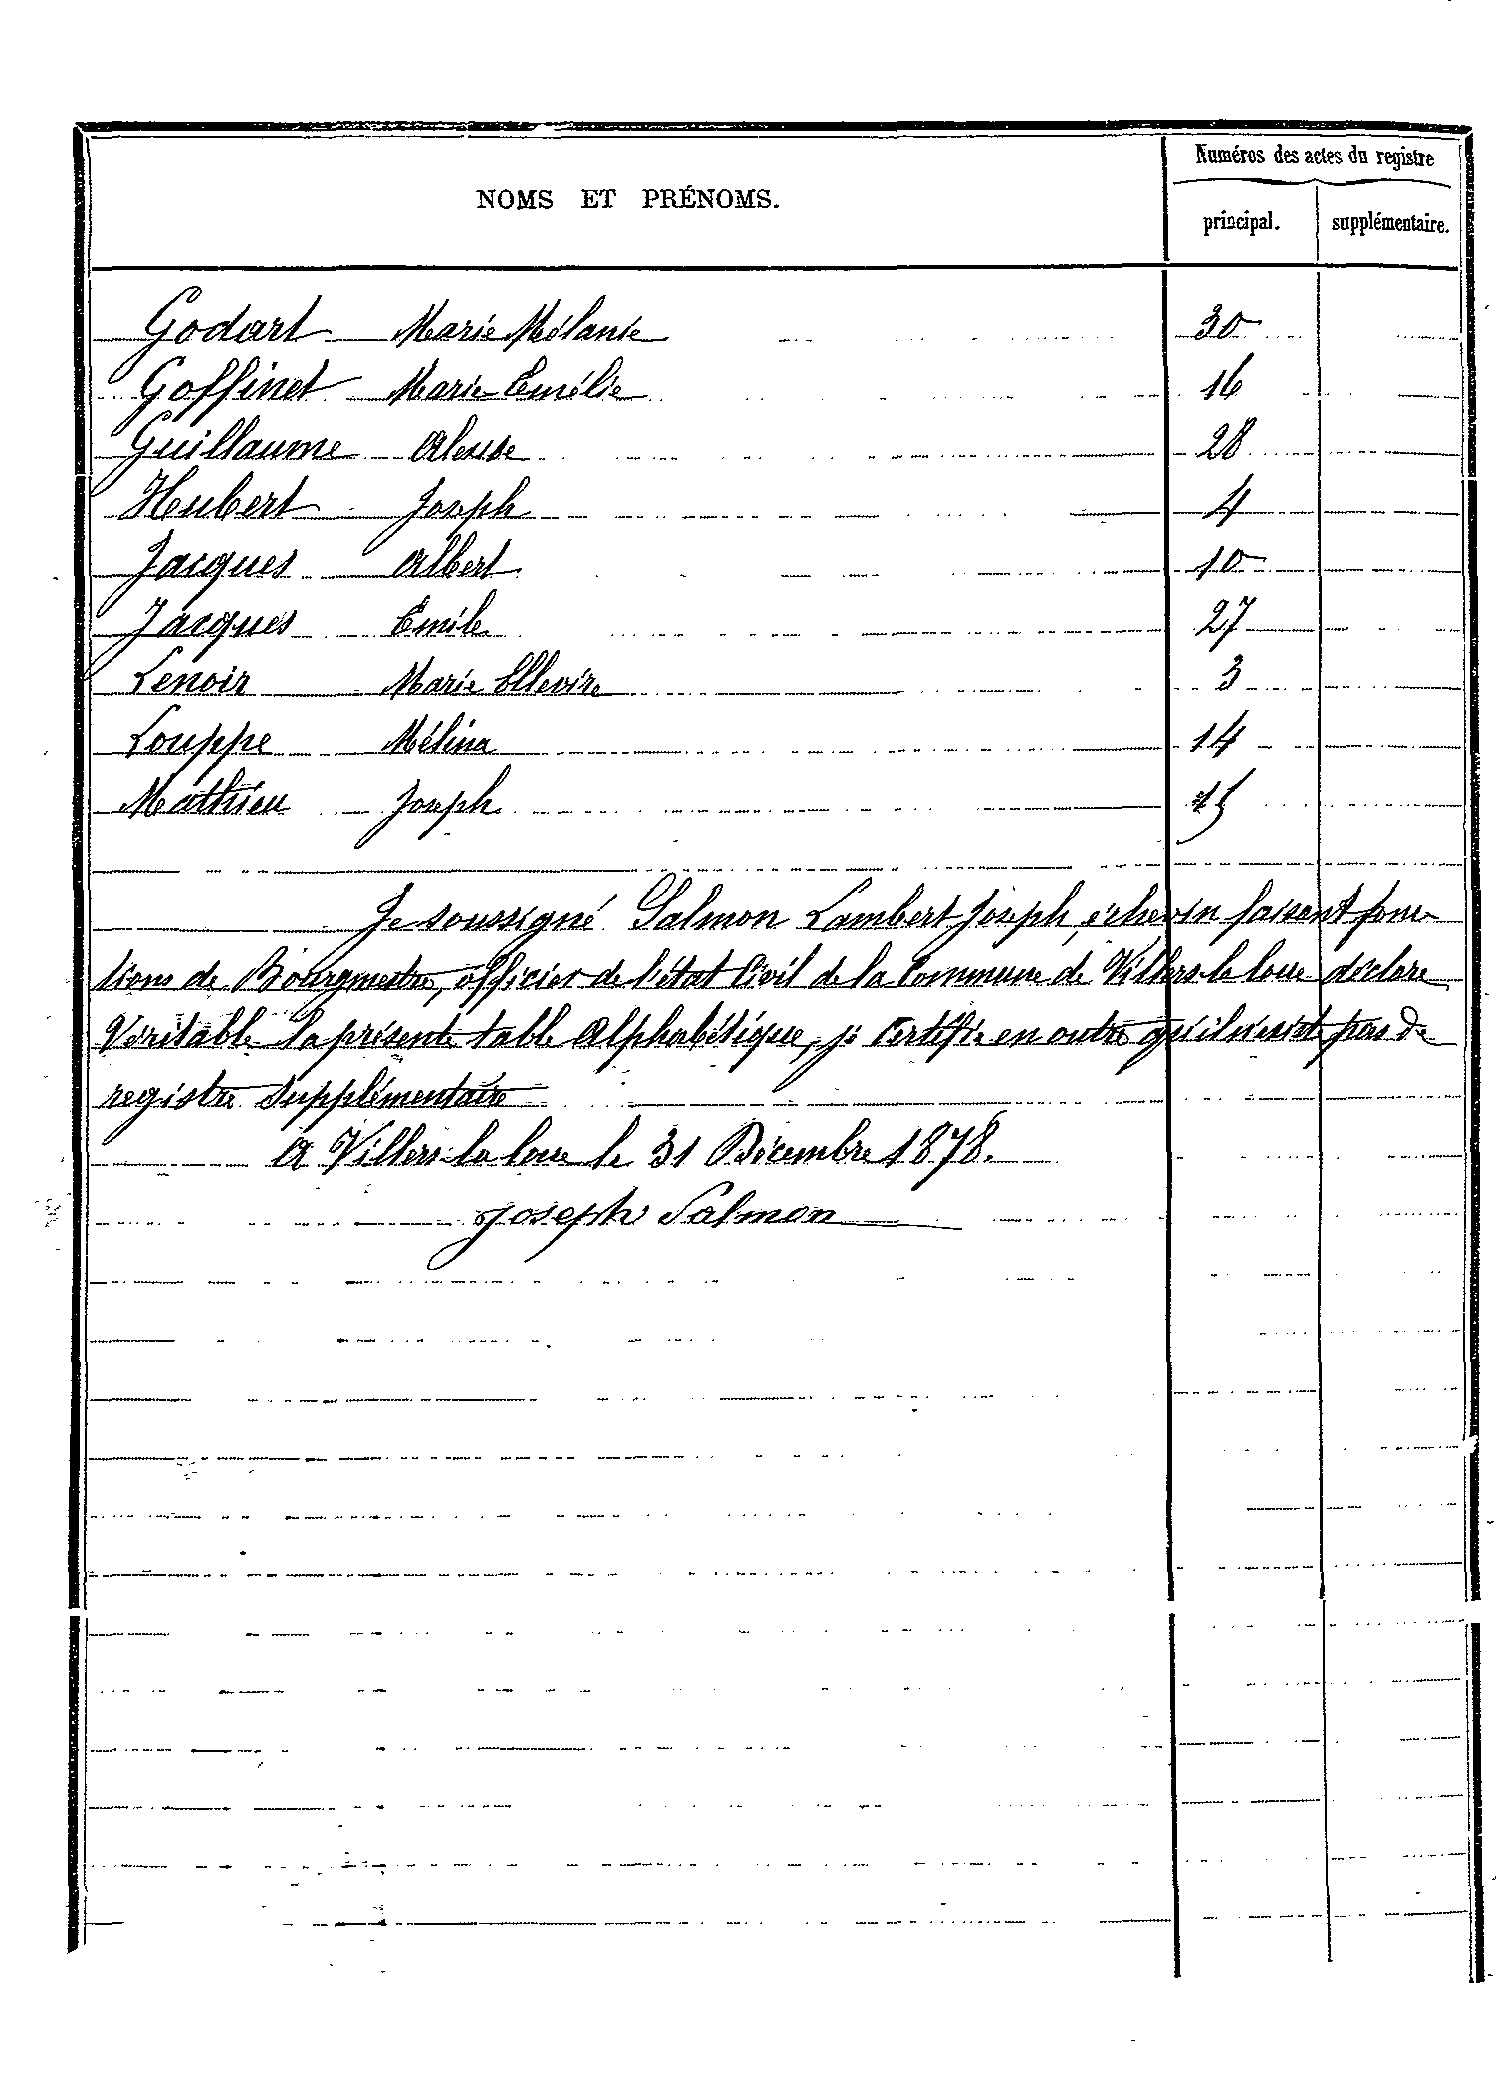 Numéros des actes du registre
NOMS ET PRÉNOMS.
principal. supplémentaire.
Godart Marie Mélanie 30
Goffinet Marie Emélie 16
Guillaume 28
Hubert Joseph 4
Jacques Albert 10
Jacques Emile 27
Lenoir Marie 3
Louppe Mélina 14
Mathieu Joseph 15
Je soussigné Salmon Lambert Joseph, échevin faisant fonc-
tions de Bourgmestre, officier de l'état Civil de la Commune de Villers-la loue déclare
Véritable la présente table Alphabétique, je Certifie en outre qu'il n'existe pas de
registre supplémentaire
A Villers-la loue le 31 Décembre 1878.
Joseph Salmon